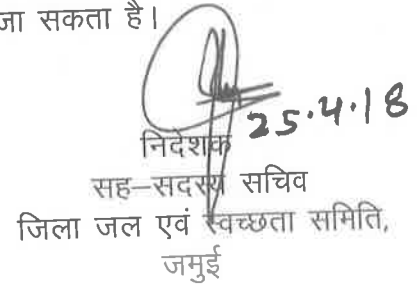 जा सकता है।
25.4.18
निदेशक
सह–सदस्य सचिव
जिला जल एवं स्वच्छता समिति,
जमुई